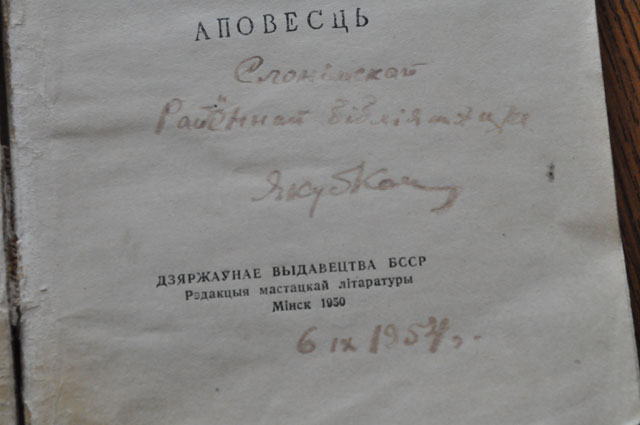 АПОВЕСЦЬ
Слонімскай
Раённай бібліятэцы
Якуб Колас
ДЗЯРЖАУНАЕ ВЫДАВЕЦТВА БССР
Рэдакцыя мастацкай літаратуры
Мінск 1950
6 IX 1954 г.